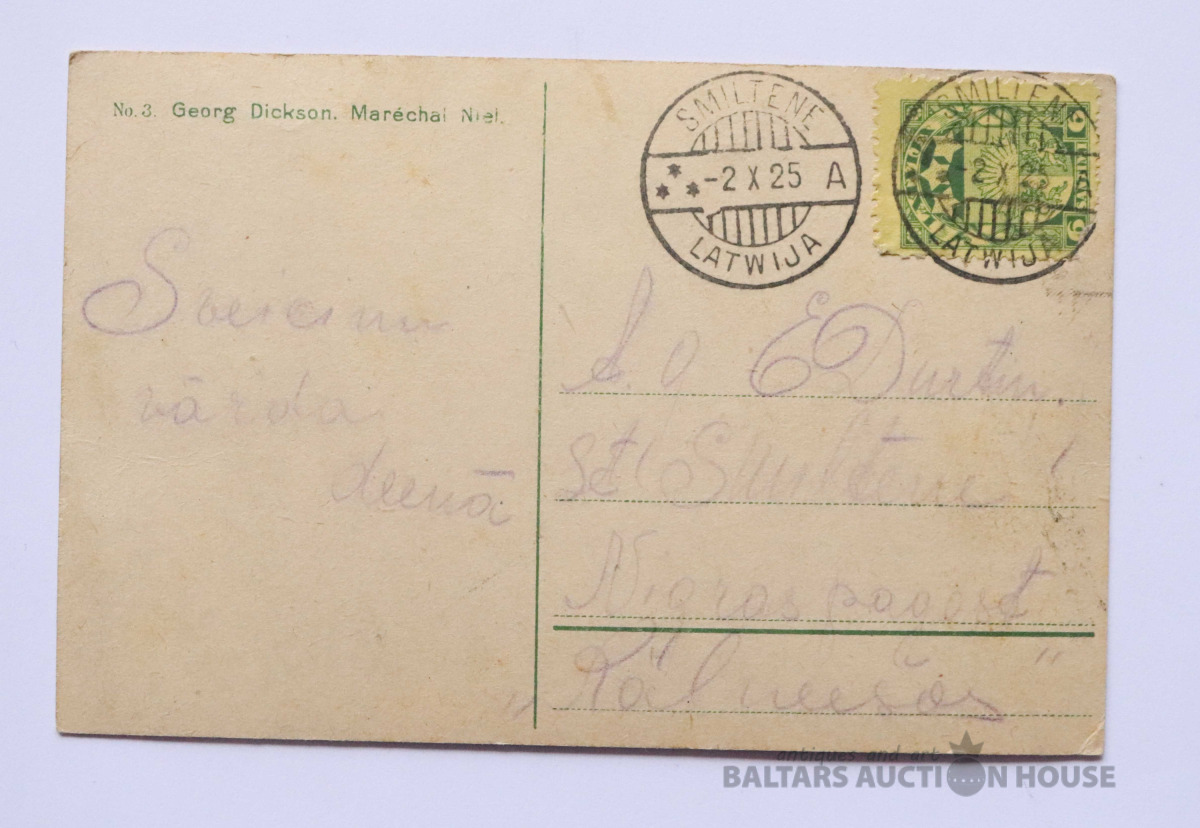 No. 3. Georg Dickson. Maréchal Niel.
SMILTENE
-2 X 25 A
LATWIJA
SMILTENE
-2 X 25
LATWIJA
Sveicinu
vārda
deenā
A. g E Durtin.
st Smiltene
pagast
antiques and art
BALTARS AUCTION HOUSE